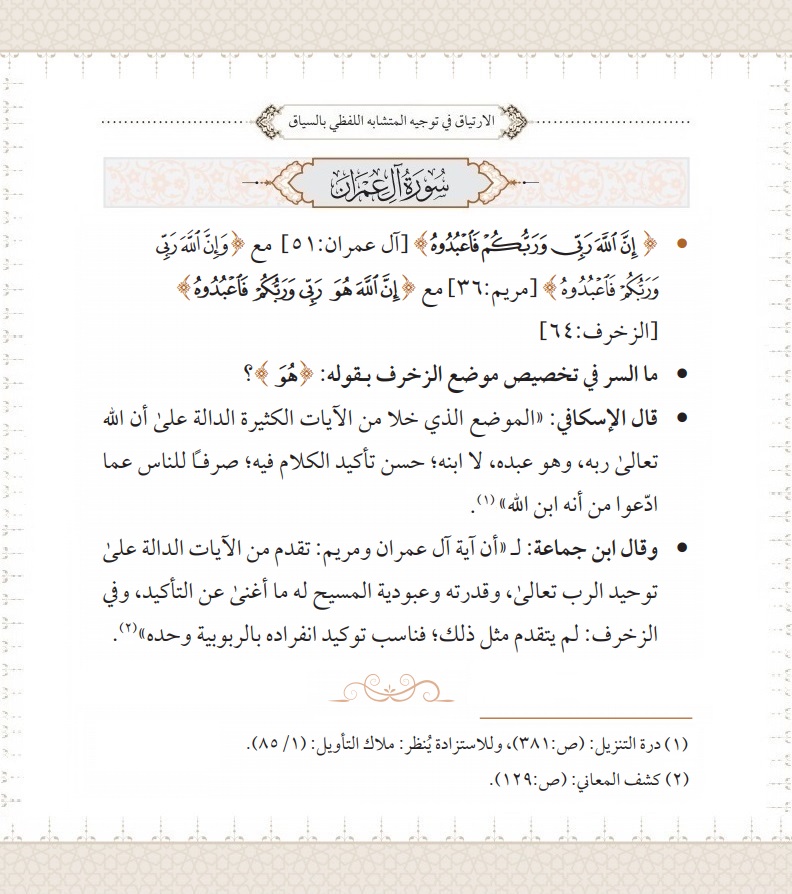 الارتياق في توجيه المتشابه اللفظي بالسياق
سُورَةُ آلِ عِمْرَان
• ﴿ إِنَّ ٱللَّهَ رَبِّى وَرَبُّكُمْ فَٱعْبُدُوهُ﴾ [آل عمران:٥١] مع ﴿وَإِنَّ ٱللَّهَ رَبِّى
وَرَبُّكُمْ فَٱعْبُدُوهُ﴾ [مريم:٣٦] مع ﴿إِنَّ ٱللَّهَ هُوَ رَبِّى وَرَبُّكُمْ فَٱعْبُدُوهُ﴾
[الزخرف:٦٤]
• ما السر في تخصيص موضع الزخرف بـقوله: ﴿هُوَ ﴾؟
• قال الإسكافي: «الموضع الذي خلا من الآيات الكثيرة الدالة علىٰ أن الله
تعالىٰ ربه، وهو عبده، لا ابنه؛ حسن تأكيد الكلام فيه؛ صرفًا للناس عما
ادّعوا من أنه ابن الله»(١).
• وقال ابن جماعة: لـ «أن آية آل عمران ومريم: تقدم من الآيات الدالة علىٰ
توحيد الرب تعالىٰ، وقدرته وعبودية المسيح له ما أغنىٰ عن التأكيد، وفي
الزخرف: لم يتقدم مثل ذلك؛ فناسب توكيد انفراده بالربوبية وحده»(٢).
(١) درة التنزيل: (ص:٣٨١)، وللاستزادة يُنظر: ملاك التأويل: (١/ ٨٥).
(٢) كشف المعاني: (ص:١٢٩).